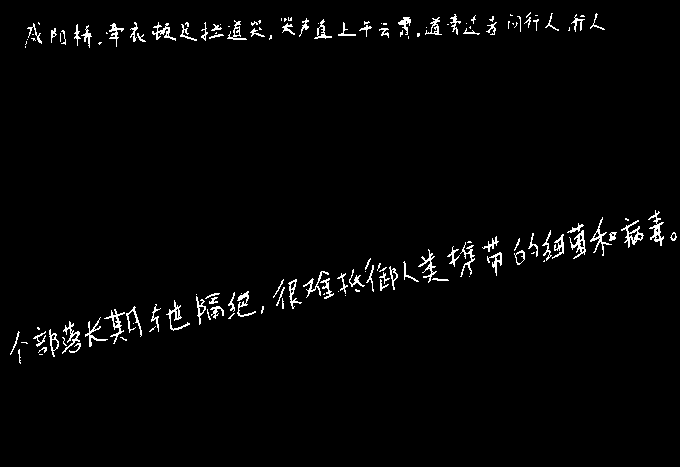 咸阳桥.牵衣顿足拦道哭,哭声直上干云霄,道旁过者问行人,行人
个部落长期与世隔绝,很难抵御人类携带的细菌和病毒。